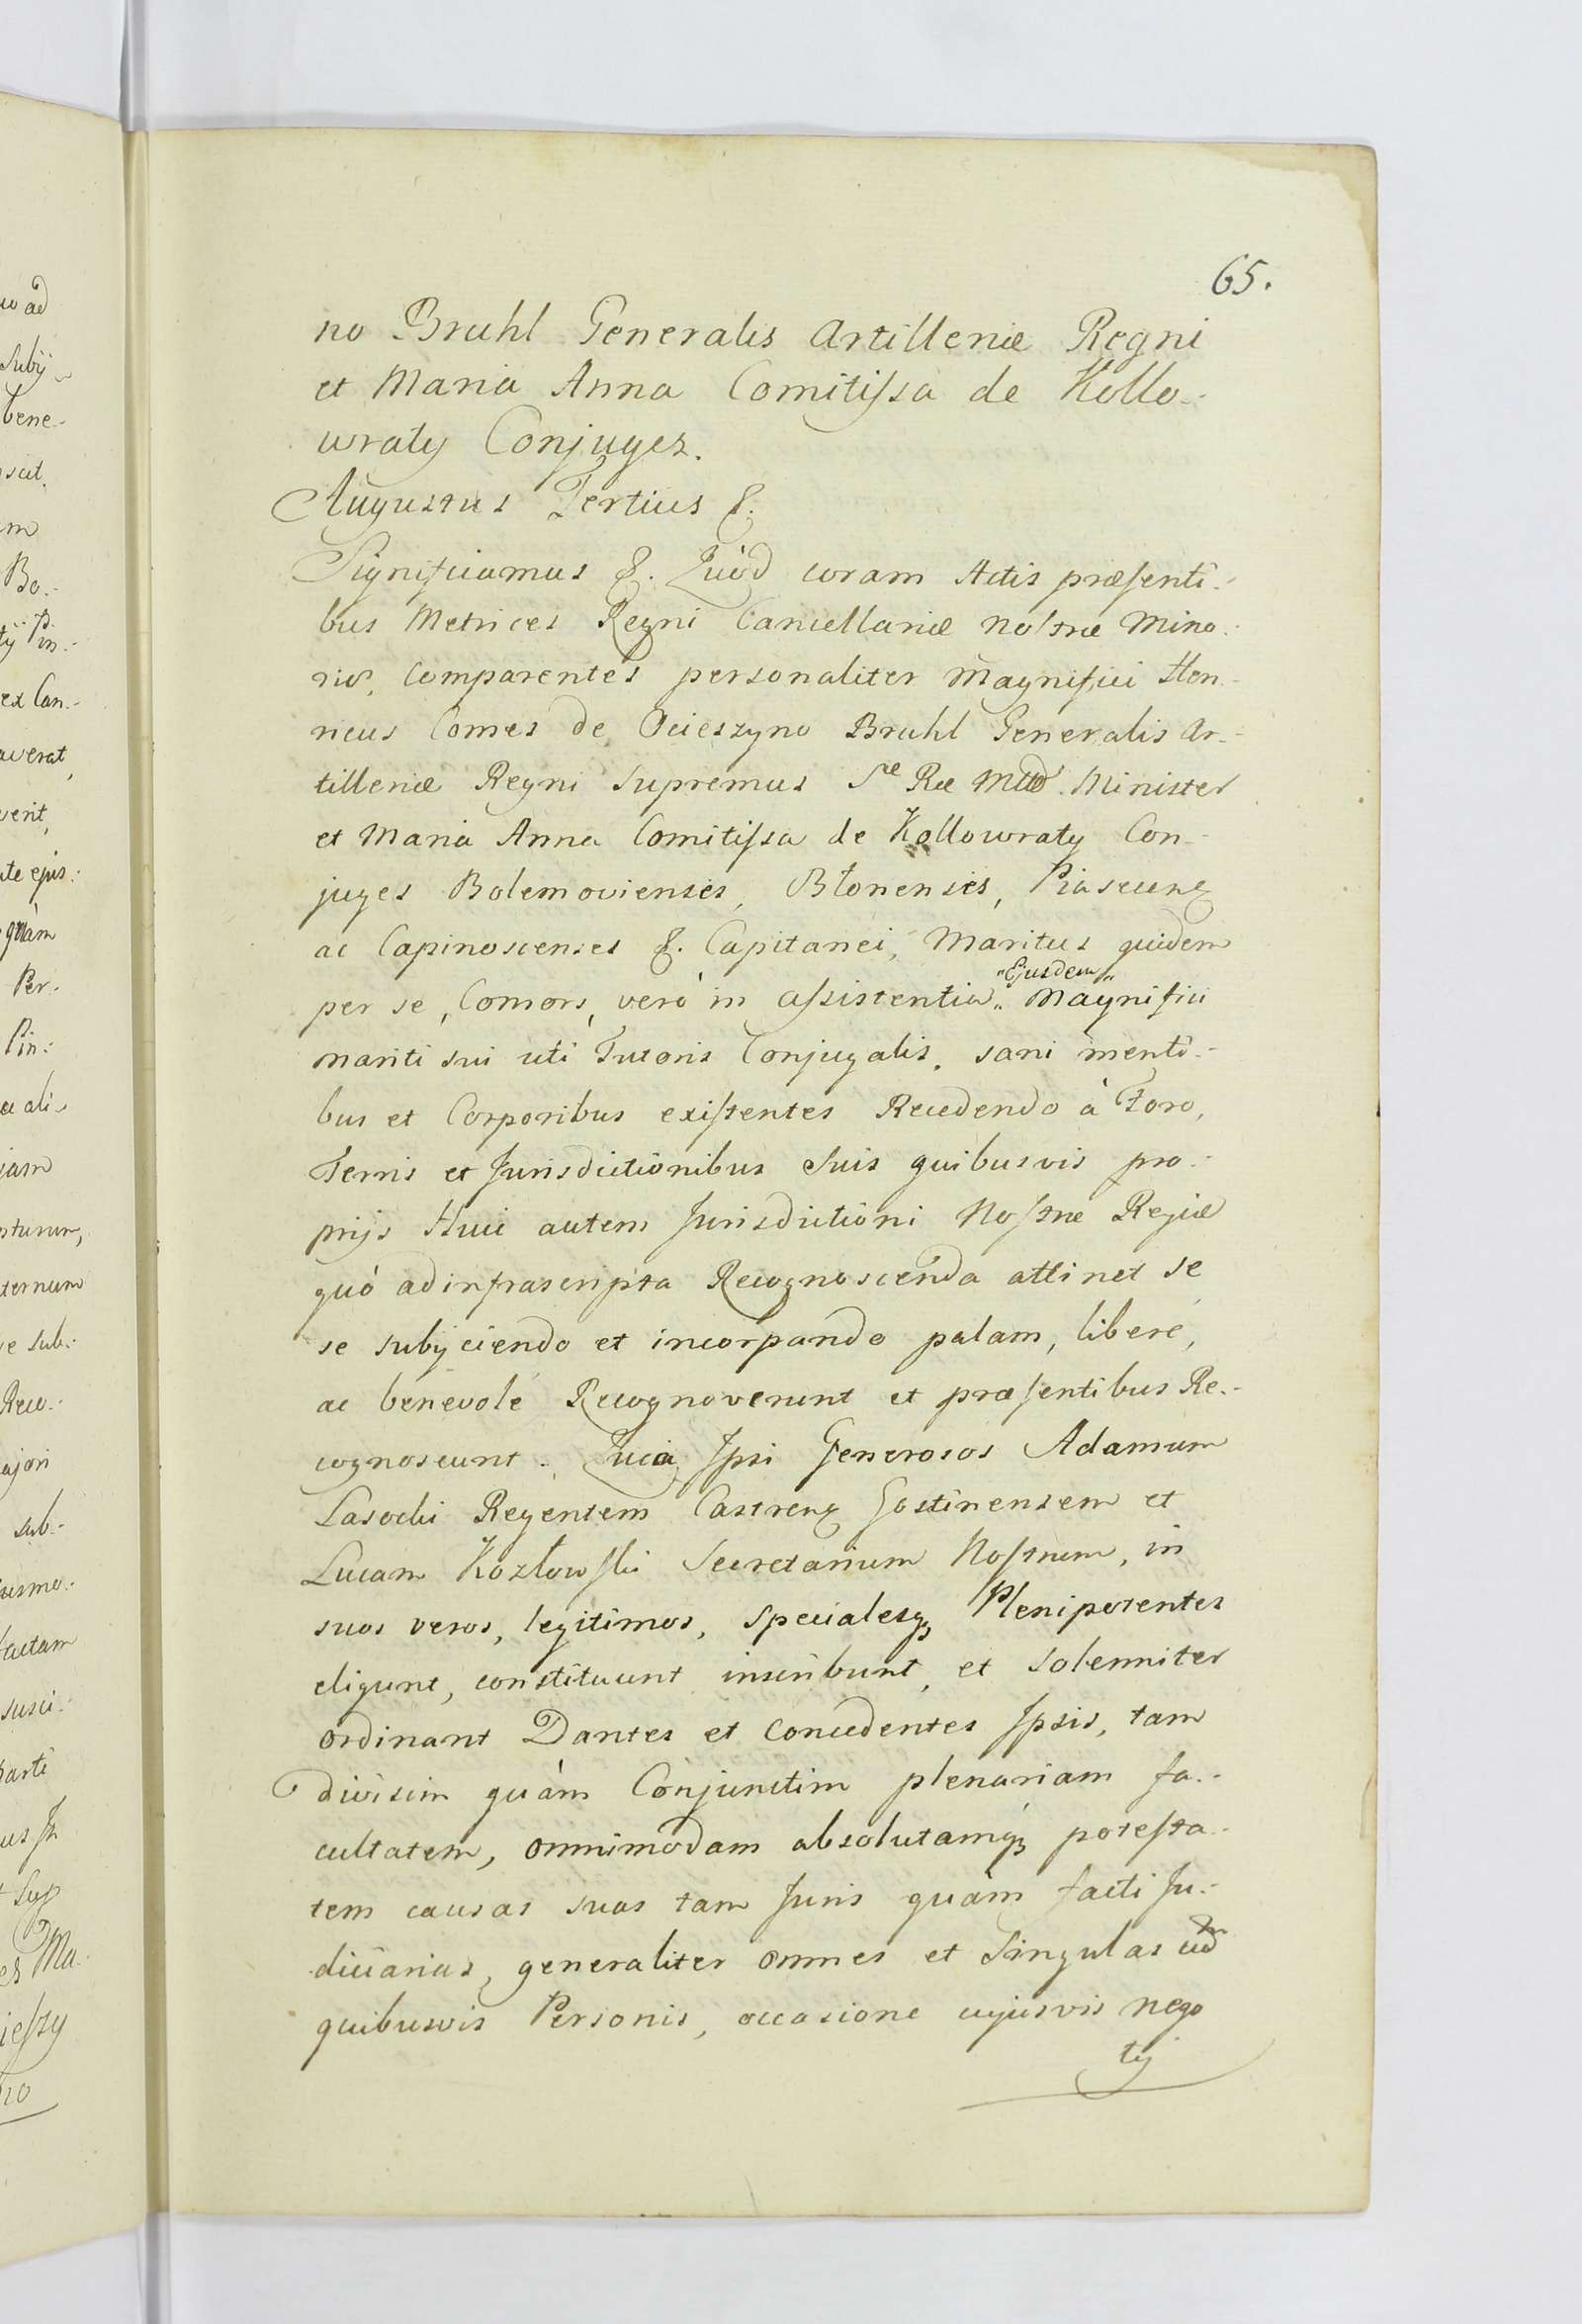 65.
no Bruhl Generalis Artilleriæ Regni
et Maria Anna Comitiſsa de Kollo-
wraty Conjuges.
Augustus Tertius &.
Significamus &. Quòd coram Actis præſenti-
bus Metrices Regni Cancellariæ noſtræ Mino-
ris, comparentes personaliter Magnifici Hen-
ricus Comes de Ocieszyno Bruhl Generalis Ar-
tilleriæ Regni Supremus Sæ Ræ Mttis Minister
et Maria Anna Comitiſsa de Kollowraty Con-
juges Bolemovienses, Błonenses, Piasecens
ac Capinoscenses &. Capitanei, Maritus quidem
per se, Consors, verò in aſsistentia „Ejusdem„ Magnifici
mariti sui uti Tutoris Conjugalis, sani menti-
bus et Corporibus exiſtentes Recedendo à Foro,
Terris et Jurisdictionibus Suis quibusvis pro-
prijs Huic autem Jurisdictioni Noſtræ Regiæ
quò ad infrascripta Recognoscenda attinet se
se subijciendo et incorpando palam, liberè,
ac benevolè Recognoverunt et præſentibus Re-
cognoscunt. Quia Ipsi Generosos Adamum
Lasocki Regentem Castrens Gostinensem et
Lucam Kozłowſki Secretarium Noſtrum, in
suos veros, legitimos, specialesq Plenipotentes
eligunt, constituunt inscribunt, et solenniter
ordinant Dantes et Concedentes Ipsis, tam
divisim quàm Conjunctim plenariam fa-
cultatem, omnimodam absolutamq poteſta-
tem causas suas tam Juris quàm facti Ju-
diciarias, generaliter omnes et Singulas cum
quibusvis Personis, occasione cujusvis nego
tij